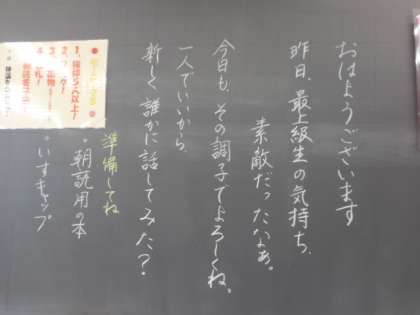 おはようございます
昨日、最上級生の気持ち、
素敵だったなぁ。
今日も、その調子でよろしくね。
一人でいいから、
新しく誰かに話してみた？
準備してね
・朝読用の本
・いすキャップ